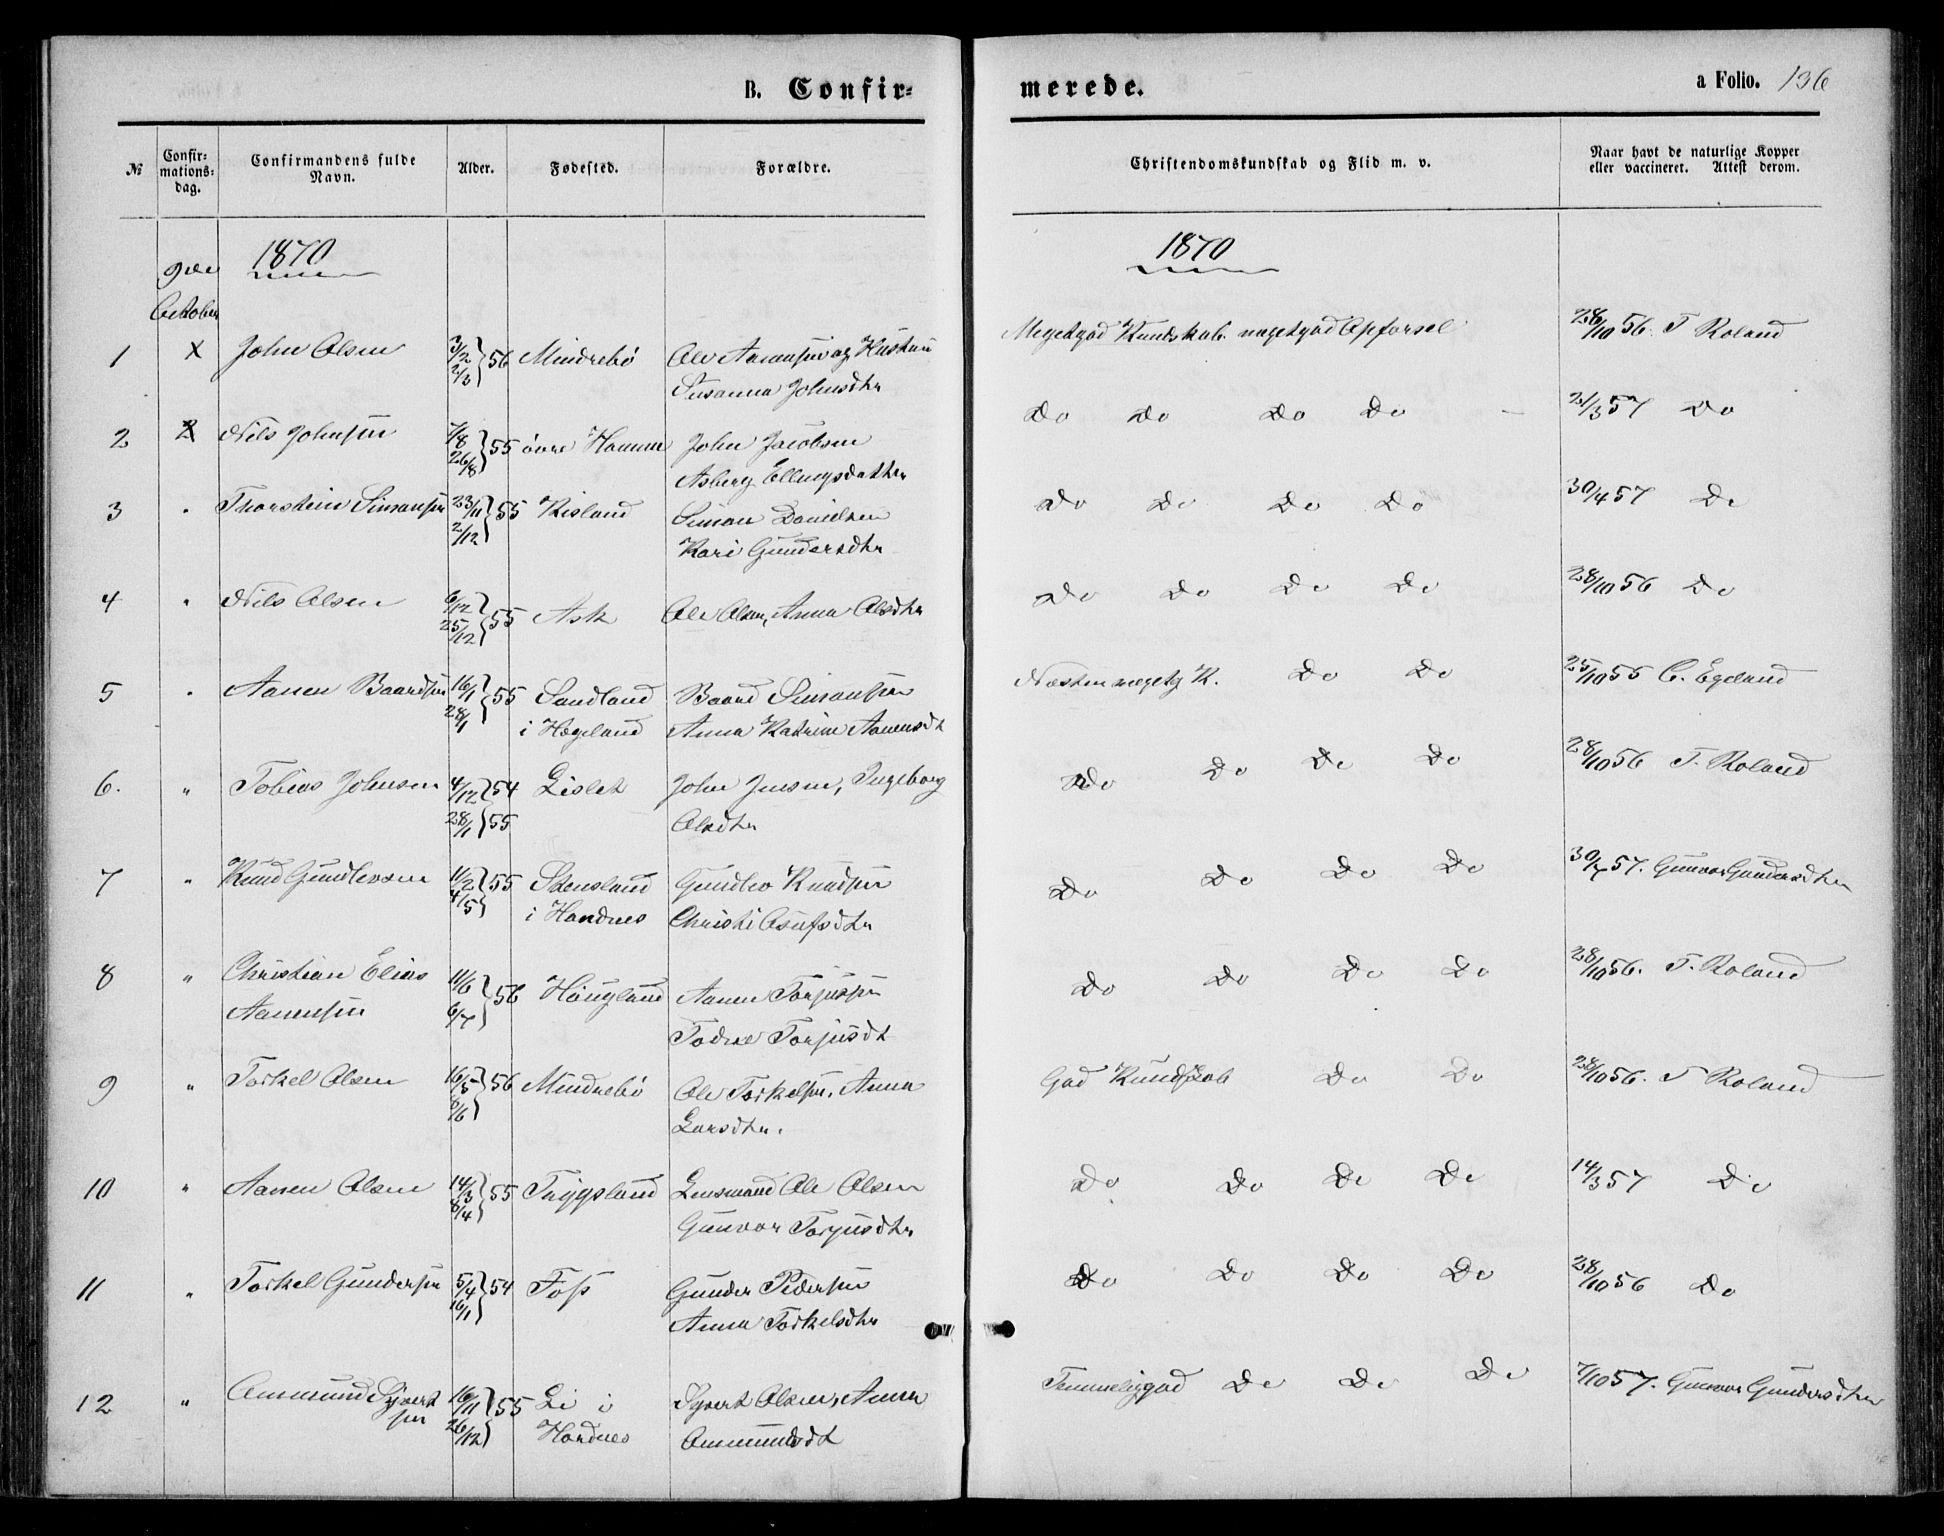 B. Confir-
merede.
a Folio. 136
№
Confir-
mations-
dag.
Confirmandens fulde
Navn.
Alder.
Fødested.
Forældre.
Christendomskundskab og Flid m. v.
Naar havt de naturlige Kopper
eller vaccineret. Attest derom.
9de 1870
1870
October
1 X John Olsen 3/2 2/3 } 56 Mindrebö Ole Aanensen og Hustru
Susanna Johnsdtr
Megetgod Kundskab. megetgod Opførsel 28/10 56. T Roland
2 Nils Johnsen 7/8 26/8 } 55 övre Homme John Jacobsen
Asberg Ellingsdatter
Do Do Do Do 21/3 57 Do
3 " Thorstein Simonsen 23/11 2/12 } 55 Kisland Simon Davidsen
Kari Gundersdtr
Do Do Do Do 30/4 57 Do
4 " Nils Olsen 6/12 25/12 } 55 Ask Ole Olsen, Anna Olsdtr
Do Do Do Do 28/10 56 Do
5 " Aanen Baardsen 16/1 28/1 } 55 Sandland Baard Simonsen
i Hægeland Anna Katrine Aanensdt
Næsten megetg K. Do Do 25/10 55 C. Egeland
6. " Tobias Johnsen 4/12 } 54 Lislet John Jensen, Ingeborg
28/1 } 55 Olsdtr
Do Do Do Do 28/10 56 T. Roland
7 " Knud Gundlevsen 11/2 4/5 } 55 Stensland Gundlev Knudsen
i Hordnes Christi
Do Do Do Do 30/7 57. Gunvor Gundersdtr
8 " Christian Elias 11/6 6/7 } 56 Höugland Aanen Torjussen
Aanensen Torjusdt
Do Do Do Do 28/10 56. T. Roland
9 " Torkel Olsen 16/5 8/6 } 56 Mindrebö Ole Torkelsen, Anna
Larsdtr.
God Kundskab Do Do 28/10 56. T Roland
10 " Aanen Olsen 14/3 8/4 } 55 Trygsland Lensmand Ole Olsen
Gunvor Torjusdtr
Do Do Do Do 14/3 57 Do
11 " Torkel Gundersen 5/4 16/1 } 54 Foss Gunder Pedersen
Anna Torkelsdtr
Do Do Do Do 28/10 56 Do
12 " Ommund Syvert 16/11 26/12 } 55 Li i Syvert Olsen, Anna
sen Hordnes Ommundsdt
Temmeliggod Do Do Do 7/10 57. Gunvor Gundersdtr